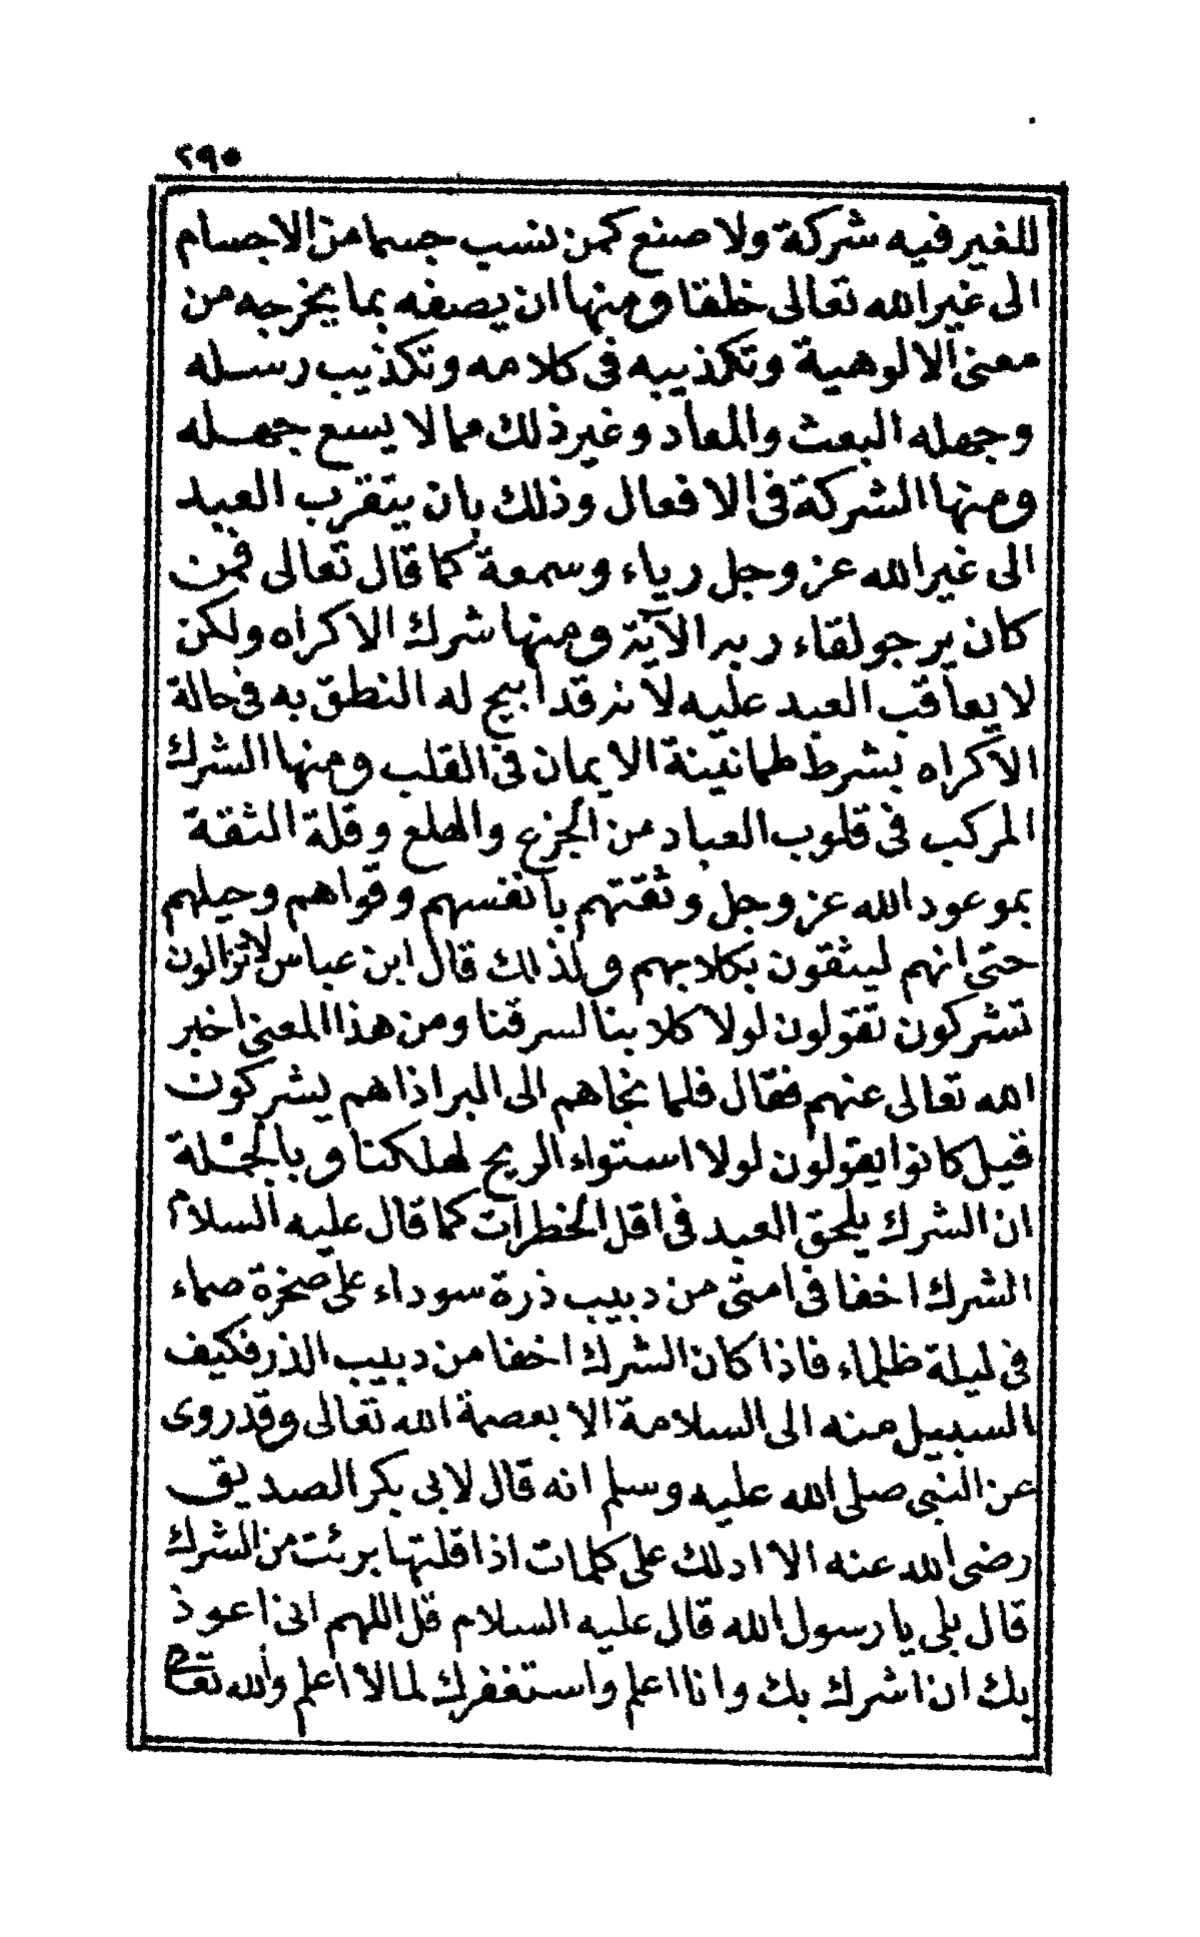 ٢٩٥
للغير فيه شركة ولا صنع كمن نسب جسما من الاجسام
الى غير الله تعالى خلقا ومنها ان يصفه بما يخرجه من
معنى الالوهية وتكذيبه فى كلامه وتكذيب رسله
وجهله البعث والمعاد وغير ذلك مما لا يسع جهله
ومنها الشركة فى الافعال وذلك بان يتقرب العبد
الى غير الله عز وجل رياء وسمعة كما قال تعالى فمن
كان يرجو لقاء ربه الآية ومنها شرك الاكراه ولكن
لا يعاقب العبد عليه لانه قد ابيح له النطق به فى حالة
الاكراه بشرط طمانينة الايمان فى القلب ومنها الشرك
المركب فى قلوب العباد من الجزع والهلع وقلة الثقة
بموعود الله عز وجل وثقتهم بانفسهم وقواهم وحيلهم
حتى انهم ليثقون بكلابهم ولذلك قال ابن عباس لا تزالون
تشركون تقولون لولا كلابنا لسرقنا ومن هذا المعنى اخبر
الله تعالى عنهم فقال فلما نجاهم الى البر اذا هم يشركون
قيل كانوا يقولون لولا استواء الريح لهلكنا وبالجملة
ان الشرك يلحق العبد فى اقل الخطرات كما قال عليه السلام
الشرك اخفا فى امتى من دبيب ذرة سوداء على صخرة صماء
فى ليلة ظلماء فاذا كان الشرك اخفا من دبيب الذر فكيف
السبيل منه الى السلامة الا بعصمة الله تعالى وقد روى
عن النبى صلى الله عليه وسلم انه قال لابى بكر الصديق
رضى الله عنه الا ادلك على كلمات اذا قلتها برئت من الشرك
قال بلى يا رسول الله قال عليه السلام قل اللهم انى اعوذ
بك ان اشرك بك وانا اعلم واستغفرك لما لا اعلم والله تعا